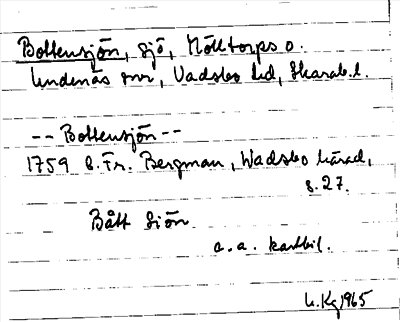 Bottensjön, sjö, Mölltorps o.
Undenäs snr, Vadsbo hd, Skarab.l.
-- Bottensjön --
1759 C.Fr. Bergman, Wadsbo härad,
s. 27.
Bått Siön
a.a. kartbil.
1965